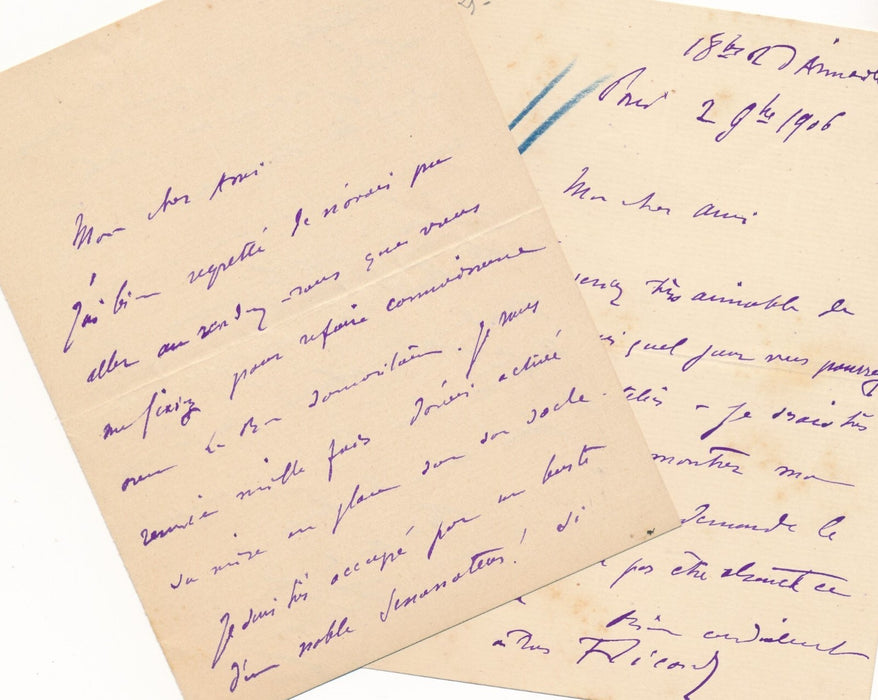 Mon cher Ami
J'ai bien regretté de n'avoir pu
aller au rendez-vous que vous
me fixiez pour refaire connaissance
avec le Bon Samaritain. Je vous
remercie mille fois d'avoir activé
sa mise en place son socle.
Je suis très occupé par un buste
d'un noble Sénateur! Si
18bis R d'Armaillé
Paris 2 9bre 1906
Mon cher ami
très aimable de
quel jour vous pourrez
Je serais très
montrer mon
demande le
pas être absent ce
Bien cordialement
à vous FSicard